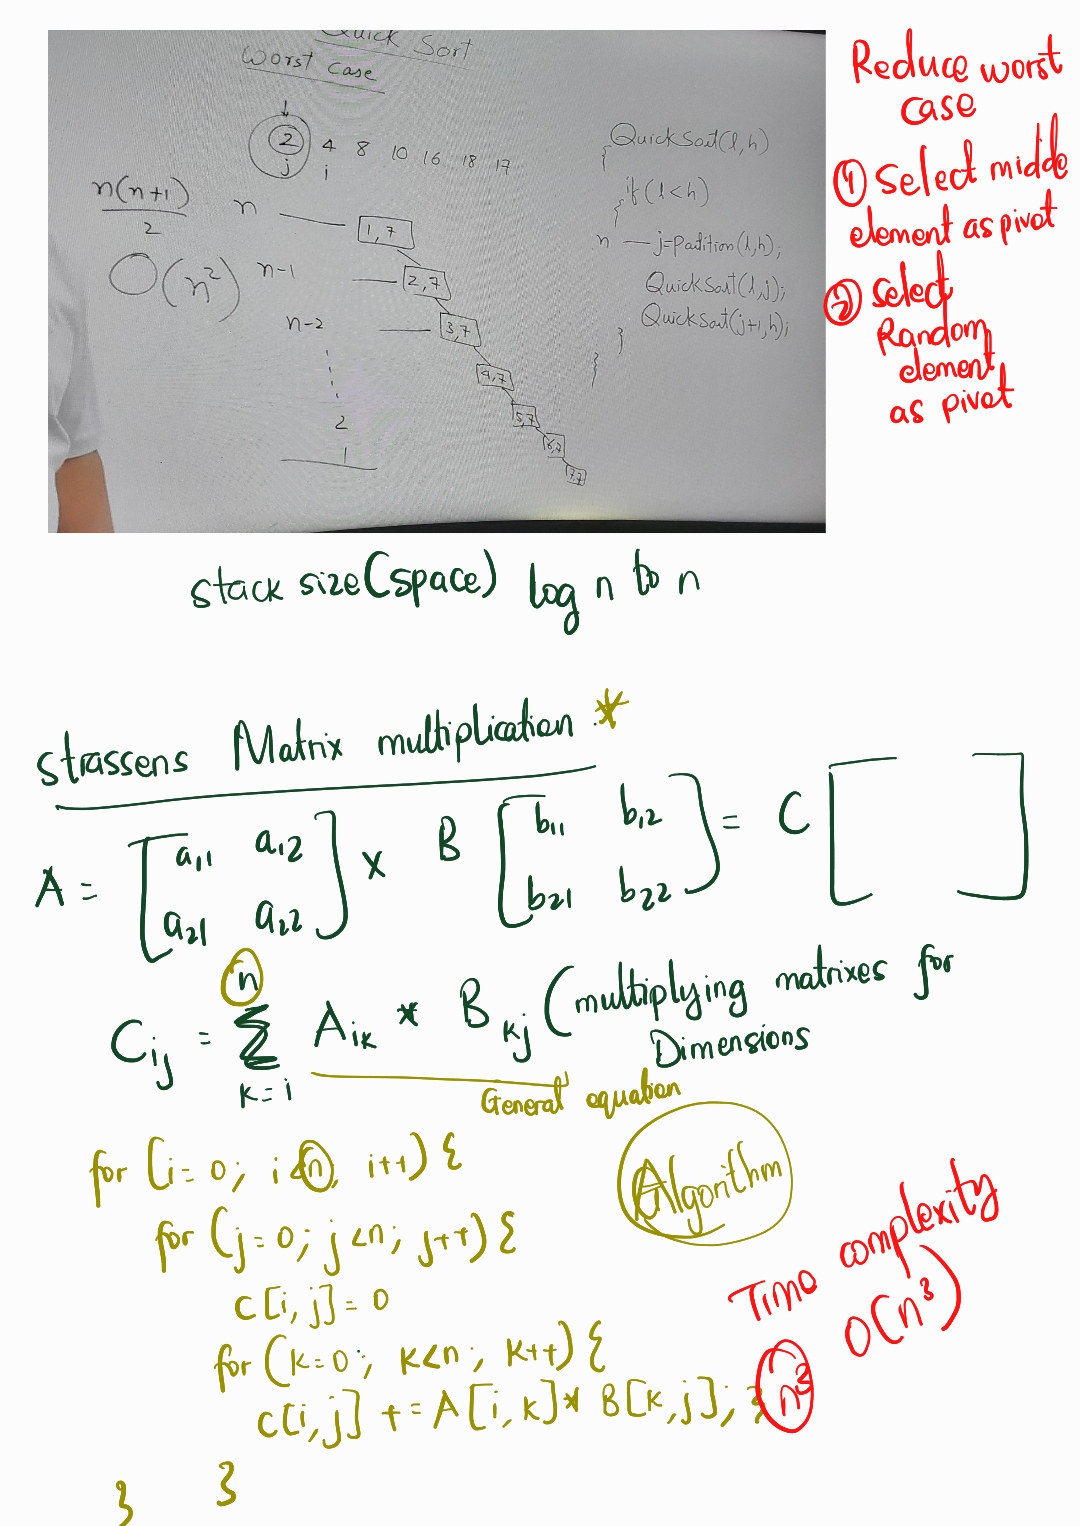 Quick Sort
Worst Case
2 4 8 10 16 18 17
j i
n(n+1)
2
O(n²)
n 1,7
n-1 2,7
n-2 3,7
4,7
5,7
2 6,7
1 7,7
QuickSort(l,h)
{
if(l<h)
{
n j=Partition(l,h);
QuickSort(l,j);
QuickSort(j+1,h);
}
}
Reduce worst
case
① Select middle
element as pivot
② select
Random
element
as pivot
stack size(space) log n to n
strassens Matrix multiplication *
A = [a11 a12 x B [b11 b12] = C [ ]
a21 a22] b21 b22
n
Cij = Σ Aik * Bkj (multiplying matrixes for
Dimensions
k=i
General equation
for (i=0; i<n, i++) {
Algorithm
for (j=0; j<n; j++) {
c[i,j]=0
for (k=0; k<n; k++) {
c[i,j] += A[i,k]* B[k,j]; }
}
}
Time complexity
n³ O(n³)